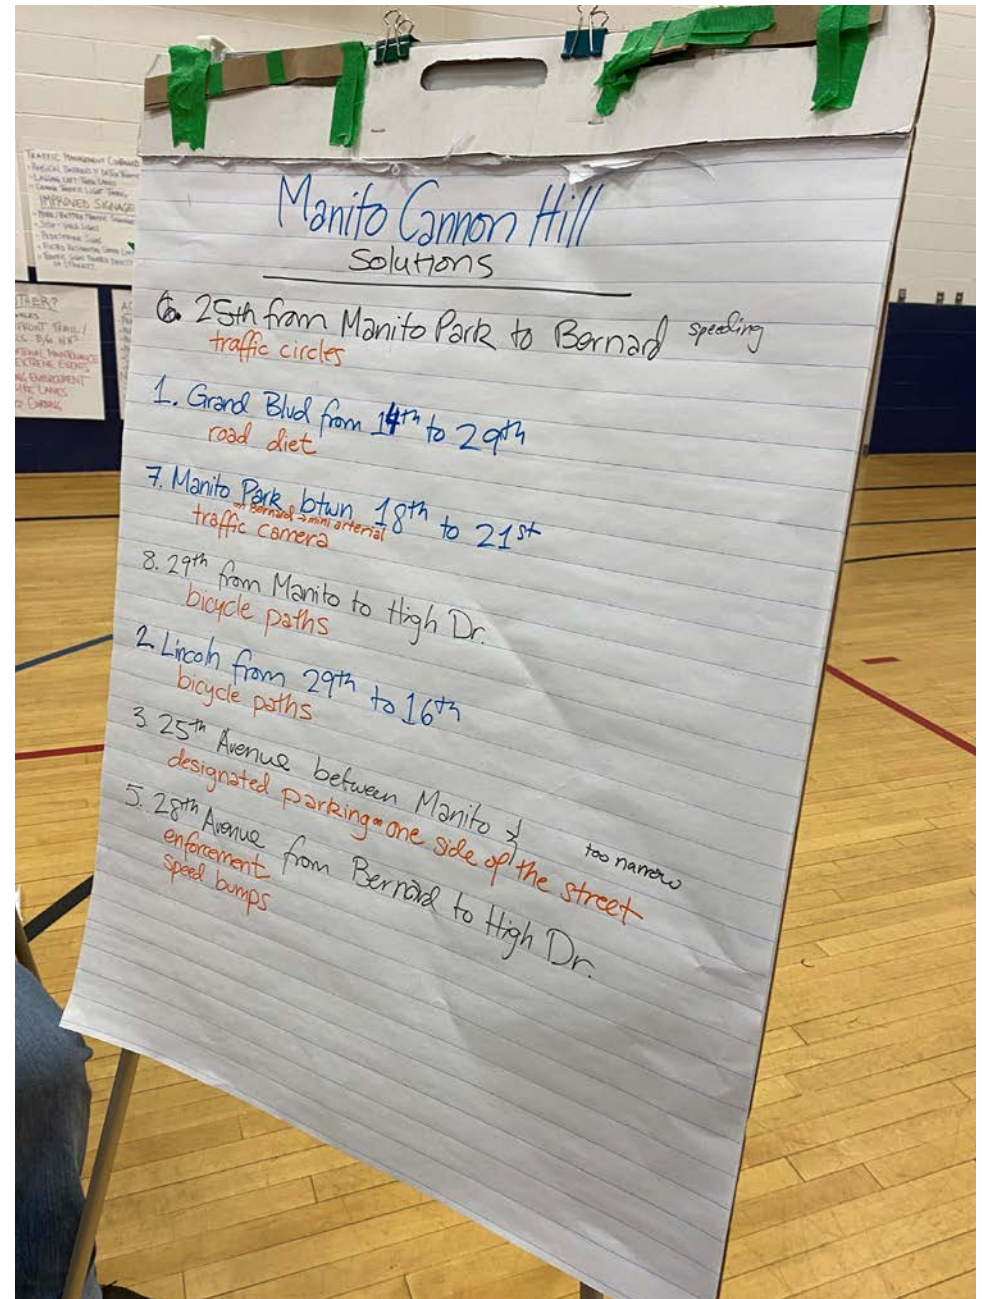 Manito Cannon Hill
Solutions
6. 25th from Manito Park to Bernard speeding
traffic circles
1. Grand Blvd from 14th to 29th
road diet
7. Manito Park btwn 18th to 21st
on Bernard → mini arterial
traffic camera
8. 29th from Manito to High Dr.
bicycle paths
2. Lincoln from 29th to 16th
bicycle paths
3. 25th Avenue between Manito &
too narrow
designated parking - one side of the street
5. 28th Avenue from Bernard to High Dr.
enforcement
speed bumps
TRAFFIC MANAGEMENT
IMPROVED SIGNAGE